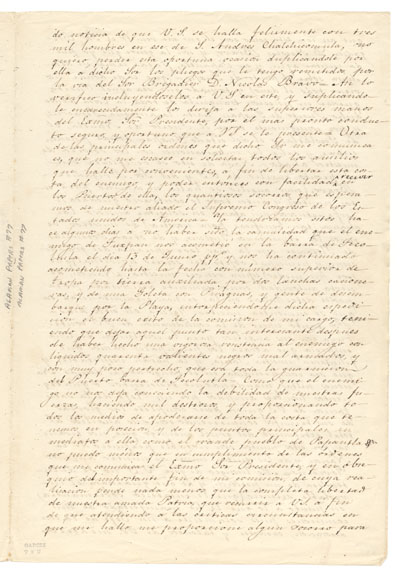 do noticia de que V. S. se halla felizmente con tres
mil hombres en ese de S. Andres Chalchicomula, no
quiero perder esta oportuna ocasion duplicandole por
ella a dicho Sor los pliegos que le tengo remitidos por
la via del Sor Brigadier D. Nicolas Bravo. Asi lo
verifico incluyendoselos a V. S. en este, y suplicando
le encarecidamente los dirija a las superiores manos
del Exmo. Sor Presidente, por el mas pronto conduc-
to seguro, y oportuno que a V. S. se le presente. Otra
de las principales ordenes que dicho Sor me comunica
es, que no me escuse en solicitar todos los auxilios
que halle por convenientes, a fin de libertar esta cos-
ta del enemigo, y poder entonces con facilidad, recivir
en los Puertos de ella, los quantiosos socorros que espera-
mos de nuestro aliado el Supremo Congreso de los Es-
tados unidos de America. Ya tendriamos estos ha-
ce algunos dias a no haber sido la casualidad que el ene-
migo de Tuxpan nos acometió en la barra de Teco-
lutla el dia 13 de Junio ppo. y nos ha continuado
acometiendo hasta la fecha con numero superior de
tropa por tierra auxiliada por dos lanchas cañone-
ras, y de una Goleta con Piraguas, y gente de desem-
barque por la Playa, entorpeciendome dicha espedi-
cion el buen exito de la comision de mi cargo, teni-
endo que dejar aquel punto tan interesante despues
de haber hecho una vigorosa constancia al enemigo con
liquidos, quarenta valientes negros mal armados, y
con muy poco pertrecho, que era toda la guarnicion
del Puerto barra de Tecolutla. Como que el enemi-
go no nos deja conociendo la debilidad de nuestras fu-
erzas, haciendo mil destrozos, y proporcionando to-
dos los medios de apoderarse de toda la costa que te-
nemos en posecion, y de los puntos principales in-
mediatos a ella como el grande pueblo de Papantla
no puedo menos que en cumplimiento de las ordenes
que me comunica el Exmo Sor Presidente, y en obse-
quio del importante fin de mi comision, de cuya rea-
lizacion pende nada menos que la completa libertad
de nuestra amada Patria, que recurrir a V. S. a fin
de que atendiendo a las criticas circunstancias en
que me hallo me proporcione algun socorro para